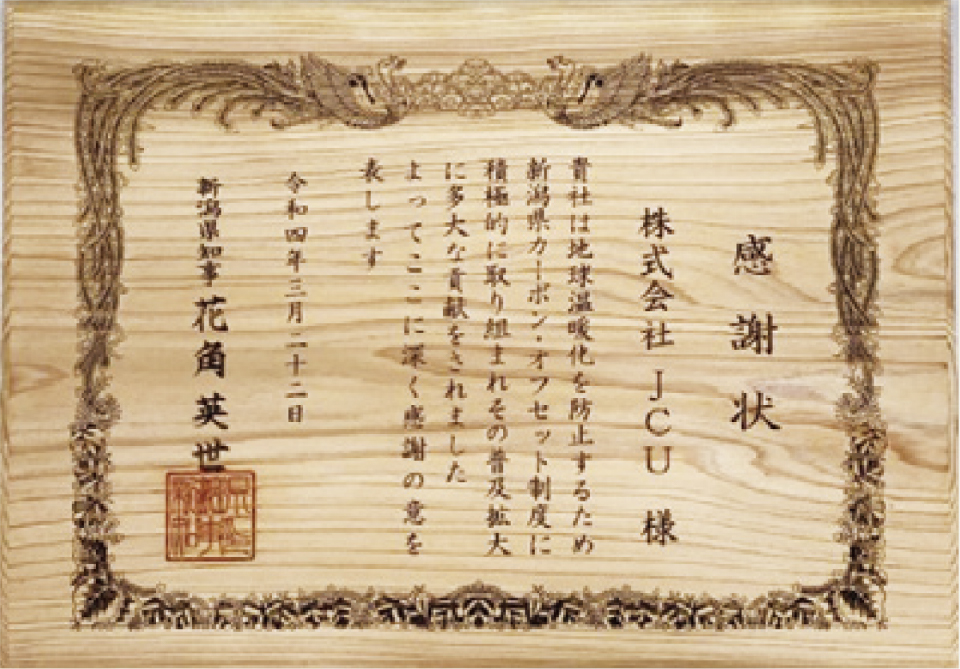 感謝状
株式会社 JCU 様
貴社は地球温暖化を防止するため
新潟県カーボン・オフセット制度に
積極的に取り組まれその普及拡大
に多大な貢献をされました
よってここに深く感謝の意を
表します
令和四年三月二十二日
新潟県知事 花角英世